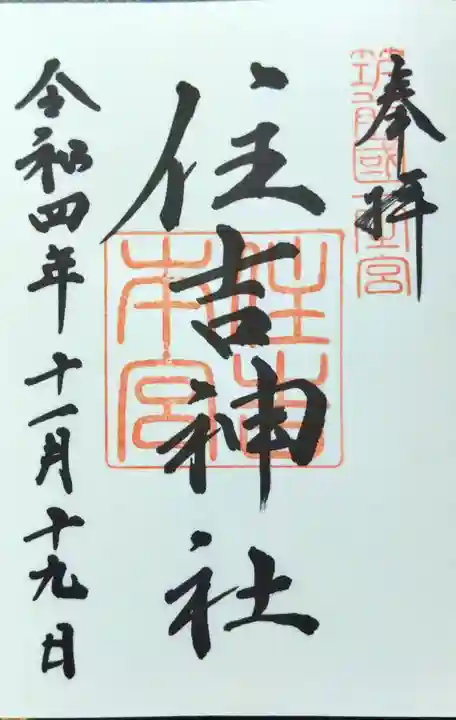 奉拝
筑前國一之宮
住吉神社
住吉本宮
令和四年十一月十九日